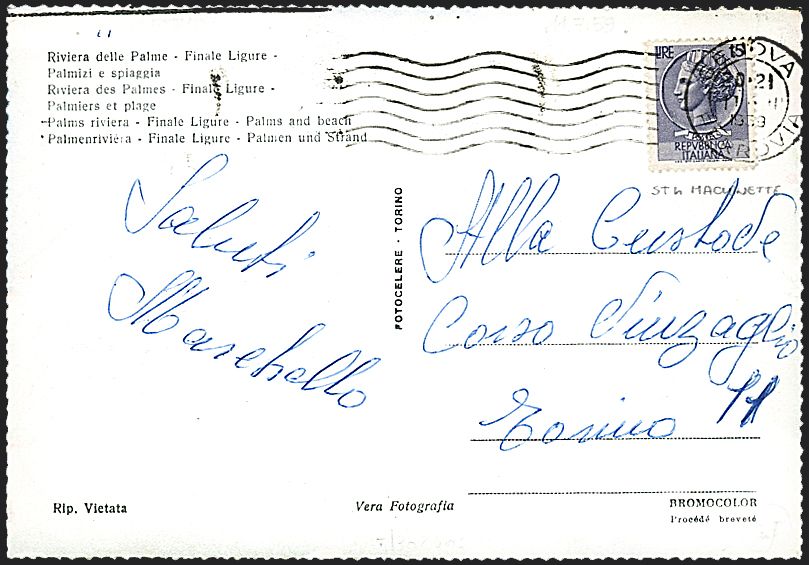 Riviera delle Palme - Finale Ligure -
Palmizi e spiaggia
Riviera des Palmes - Finale Ligure -
Palmiers et plage
Palms riviera - Finale Ligure - Palms and beach
Palmenriviera - Finale Ligure - Palmen und Strand
LIRE 15
REPVBBLICA
ITALIANA
GENOVA
FERROVIA
1959
Saluti
FOTOCELERE - TORINO
Alla Custode
Corso Vinzaglio
11
Torino
Rip. Vietata
Vera Fotografia
BROMOCOLOR
Procédé breveté